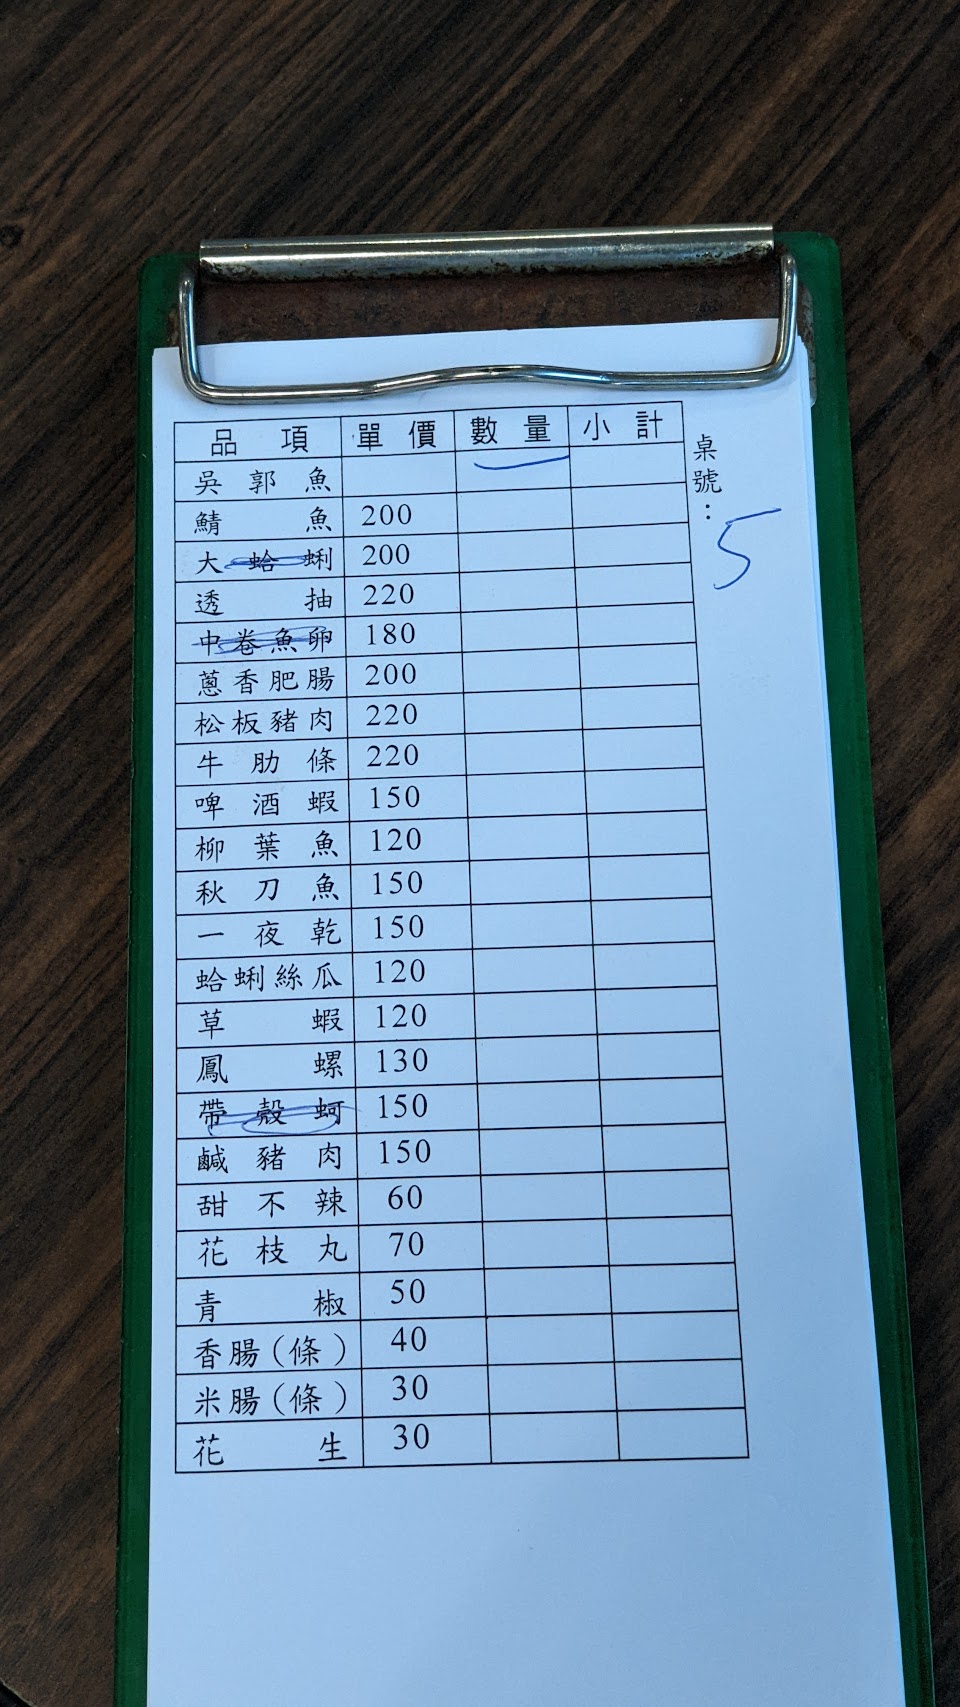 品項 單價 數量 小計
桌號：5
吳郭魚
鯖魚 200
大蛤蜊 200
透抽 220
中卷魚卵 180
蔥香肥腸 200
松板豬肉 220
牛肋條 220
啤酒蝦 150
柳葉魚 120
秋刀魚 150
一夜乾 150
蛤蜊絲瓜 120
草蝦 120
鳳螺 130
帶殼蚵 150
鹹豬肉 150
甜不辣 60
花枝丸 70
青椒 50
香腸(條) 40
米腸(條) 30
花生 30